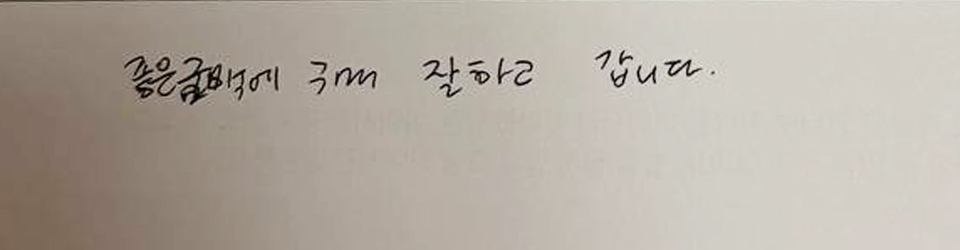 좋은금액에 구매 잘하고 갑니다.